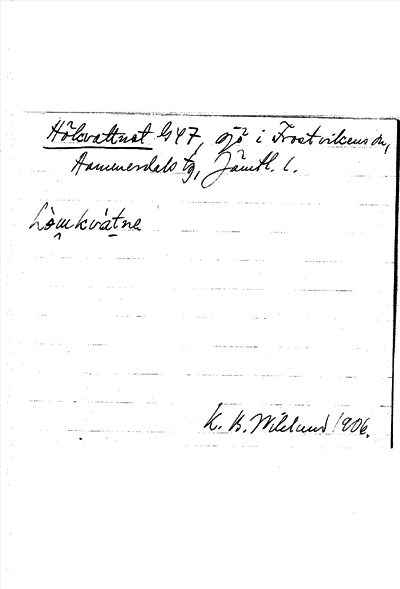 Hökvattnet G47, sjö i Frostvikens sn,
Hammerdals tg, Jämtl. l.
Lòmkvátne
K. B. Wiklund 1906.